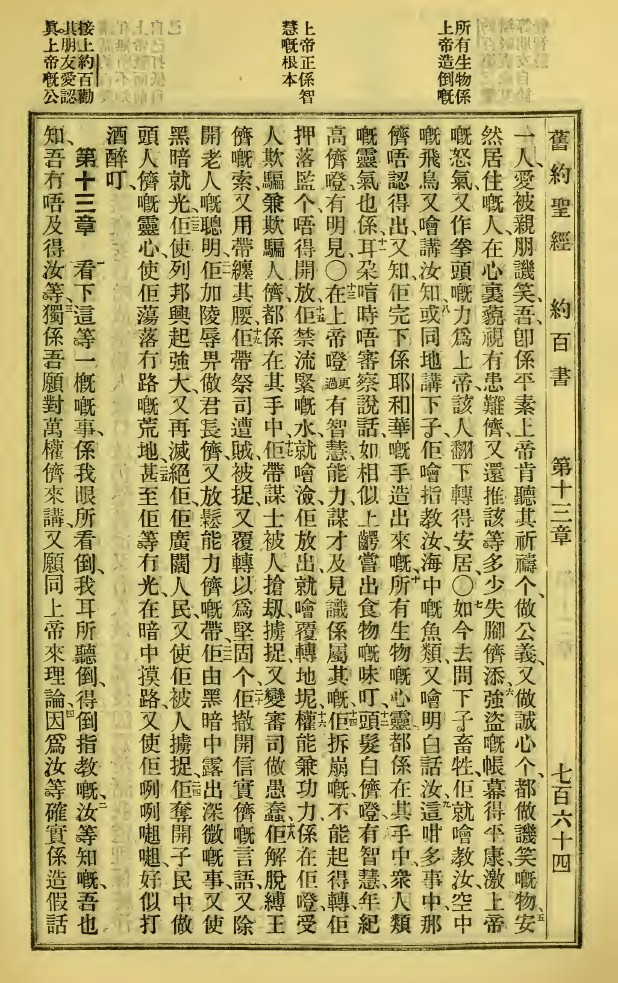 所有生物係
上帝造倒嘅
上帝正係智
慧嘅根本
接上約百勸
其朋友愛認
眞上帝嘅公
舊約聖經 約百書 第十三章 七百六十四
一人、愛被親朋譏笑、吾卽係平素上帝肯聽其祈禱个、做公義、又做誠心个、都做譏笑嘅物、五安
然居住嘅人、在心裏藐視有患難儕、又還推該等多少失腳儕添、六強盜嘅帳幕得平康、激上帝
嘅怒氣、又作拳頭嘅力爲上帝、該人翻下轉得安居、○七如今去問下子畜牲、佢就噲教汝、空中
嘅飛鳥、又噲講汝知、八或同地講下子、佢噲指教汝、海中嘅魚類、又噲明白話汝、九這咁多事中、那
儕唔認得出、又知佢完下係耶和華嘅手造出來嘅、十所有生物嘅心靈、都係在其手中、衆人類
嘅靈氣也係、十一耳朶喑時唔審察說話、如相似上齶當出食物嘅味叮、十二頭髮白儕噔有智慧、年紀
高儕噔有明見、○十三在上帝噔更過有智慧能力、謀才及見識係屬其嘅、十四佢拆崩嘅、不能起得轉、佢
押落監个、唔得開放、十五佢禁流緊嘅水、就噲瀲、佢放出就噲覆轉地坭、十六權能兼功力、係在佢噔、受
人欺騙兼欺騙人儕、都係在其手中、十七佢帶謀士被人搶刼擄捉、又變審司做愚蠢、十八佢解脫縛王
儕嘅索、又用帶纏其腰、十九佢帶祭司遭賊被捉、又覆轉以爲堅固个、二十佢撤開信實儕嘅言語、又除
開老人嘅聰明、二一佢加陵辱畀做君長儕、又放鬆能力儕嘅帶、二二佢由黑暗中露出深微嘅事、又使
黑暗就光、二三佢使列邦興起強大、又再滅絕佢、佢廣闊人民、又使佢被人擄捉、二四佢奪開子民中做
頭人儕嘅靈心、使佢蕩落冇路嘅荒地、二五甚至佢等冇光、在暗中摸路、又使佢咧咧𡁷𡁷、好似打
酒醉叮、
第十三章 一看下這等一概嘅事、係我眼所看倒、我耳所聽倒、得倒指教嘅、二汝等知嘅、吾也
知、吾冇唔及得汝等、三獨係吾願對萬權儕來講、又願同上帝來理論、四因爲汝等確實係造假話